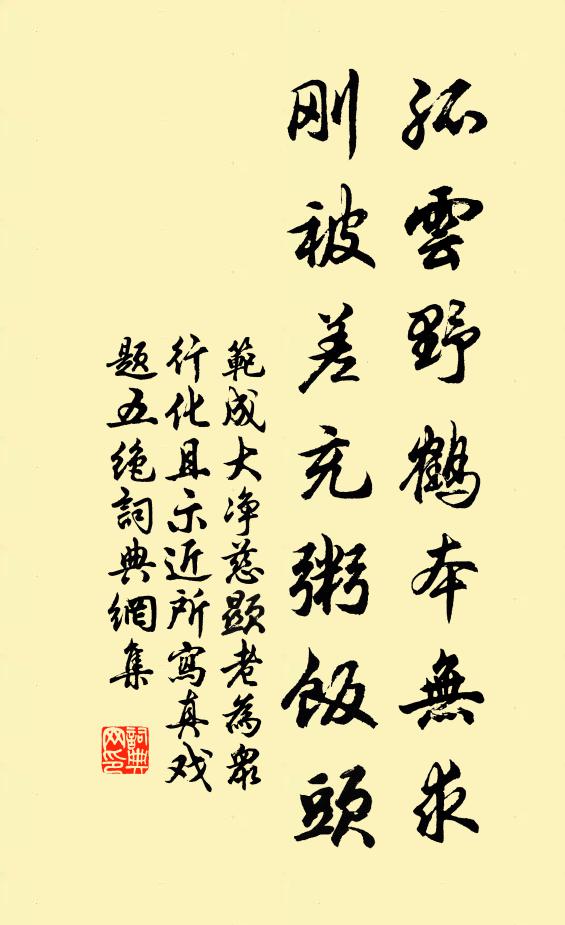 孤雲野鶴本無求
刚被差充粥飯頭
範成大净慈顯老為衆
行化且示近所寫真戏
题五绝詞典網集
詞典网印